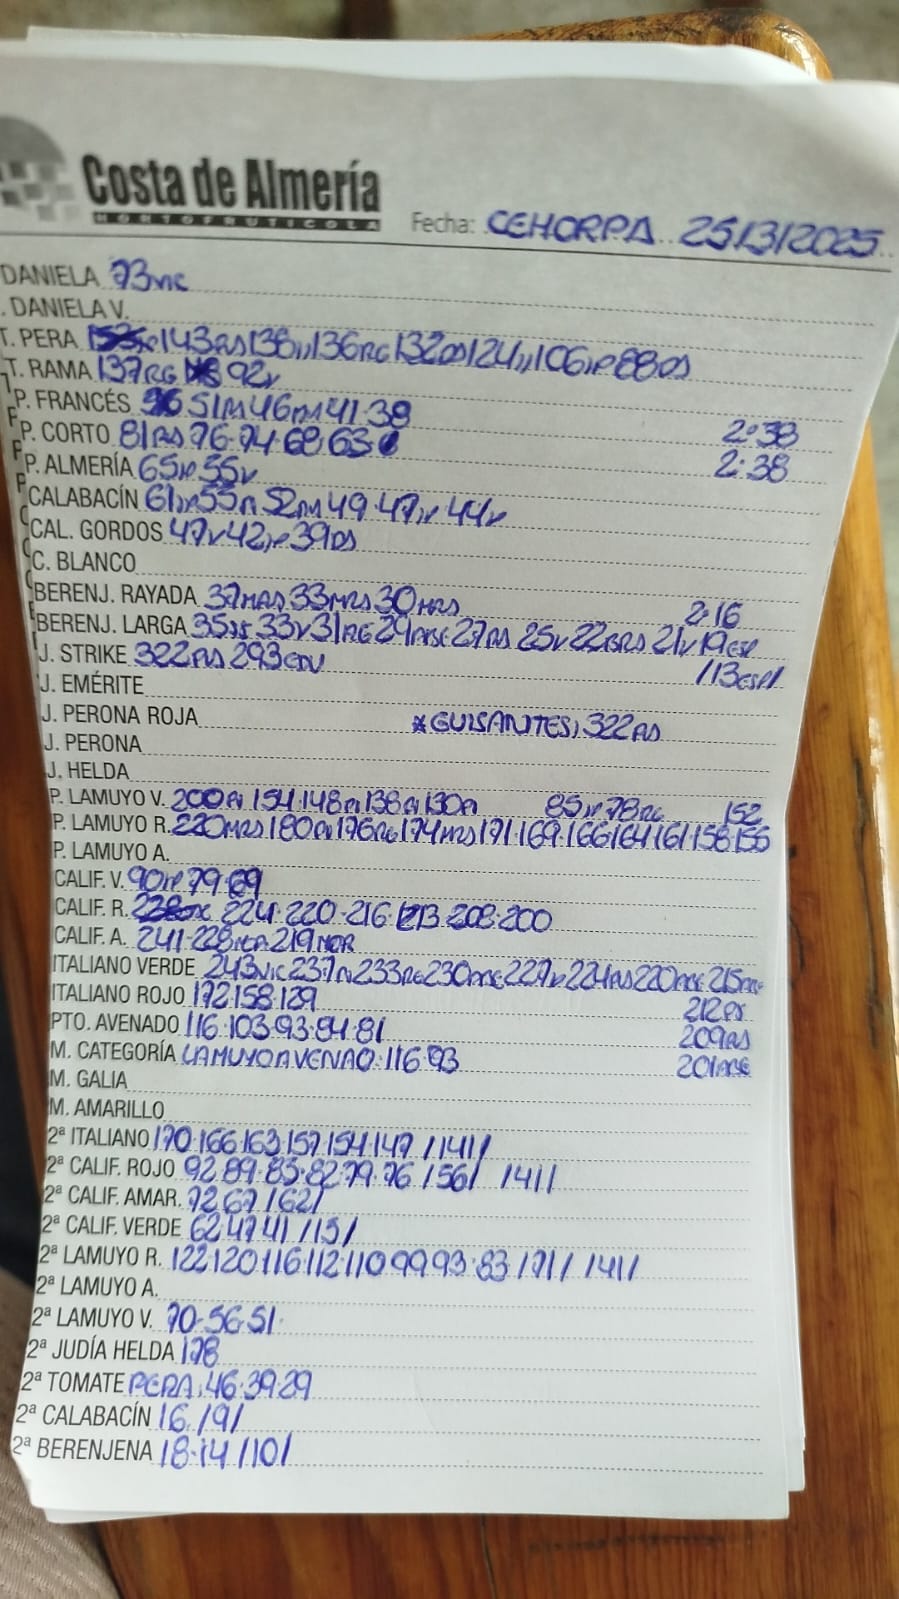 Costa de Almería
HORTOFRUTICOLA
Fecha: CEHORPA 25/3/2025
DANIELA 73
. DANIELA V.
T. PERA 143 138 136RG 132 124 106 88
T. RAMA 137RG 92v
P. FRANCÉS 51 46 41·38 2ª38
P. CORTO 81 76·74·68·63 2·38
P. ALMERÍA 65 55v
CALABACÍN 61 55 52 49·47 44v
CAL. GORDOS 47v 42 39
C. BLANCO
BERENJ. RAYADA 37 33MRS 30MRS 2·16
BERENJ. LARGA 35 33v 31RG 29 27 25v 22 21v 19
J. STRIKE 322 293 /13
J. EMÉRITE
J. PERONA ROJA *GUISANTES) 322
J. PERONA
J. HELDA
P. LAMUYO V. 200 154·148 138 130 85 78RG 152
P. LAMUYO R. 220MRS 180 176RG 174MRS 171·169·166 164 161·158·155
P. LAMUYO A.
CALIF. V. 90 79·69
CALIF. R. 224·220·216·213·208·200
CALIF. A. 241·228 219
ITALIANO VERDE 243 237 233RG 230 227v 224 220 215
ITALIANO ROJO 172·158·129 212
PTO. AVENADO 116·103·93·84·81 209
M. CATEGORÍA LAMUYO AVENAO: 116·93 201
M. GALIA
M. AMARILLO
2ª ITALIANO 170·166·163·157·154·147 /141/
2ª CALIF. ROJO 92·89·83·82·79·76 /56/ /41/
2ª CALIF. AMAR. 72 67 /62/
2ª CALIF. VERDE 62·47·41 /15/
2ª LAMUYO R. 122·120·116·112·110 99 93·83 /71/ /41/
2ª LAMUYO A.
2ª LAMUYO V. 70·56·51·
2ª JUDÍA HELDA 178
2ª TOMATE PERA, 46·39·29
2ª CALABACÍN 16 /9/
2ª BERENJENA 18·14 /10/